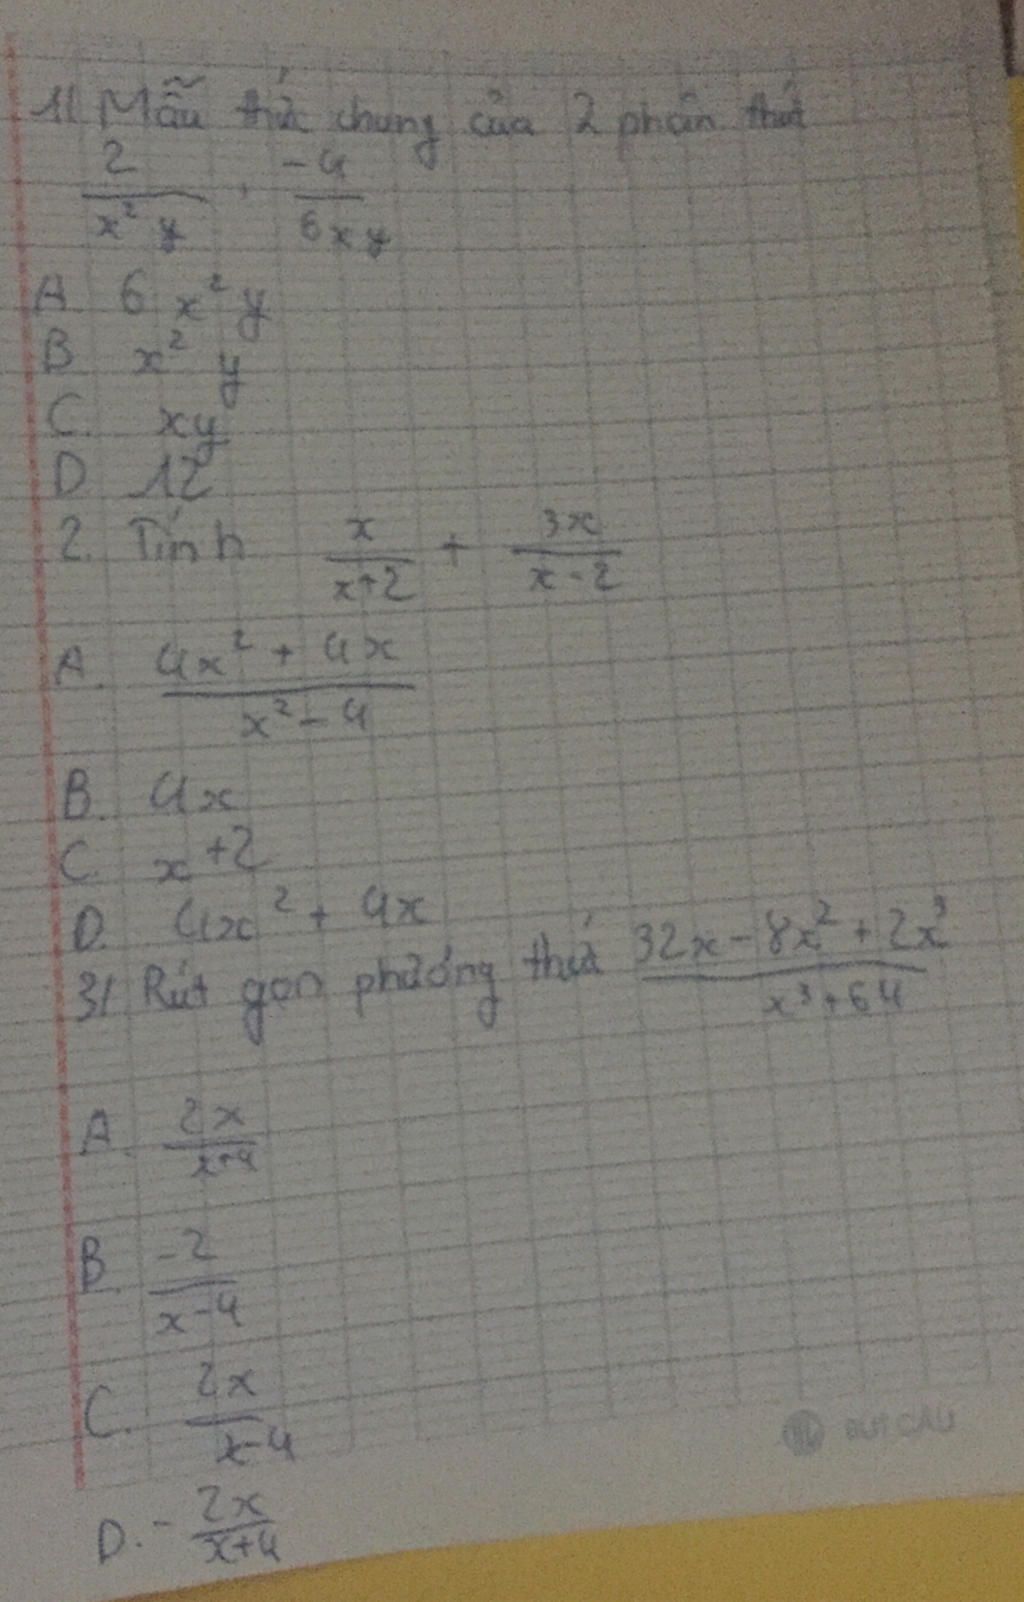 1/ Mẫu thức chung của 2 phân thức
2/x²y , -4/6xy
A 6x²y
B x²y
C. xy
D 12
2. Tính x/(x+2) + 3x/(x-2)
A. (4x² + 4x)/(x² - 4)
B. 4x
C. x+2
D. 4x² + 4x
3/ Rút gọn phương thức (32x - 8x² + 2x³)/(x³ + 64)
A. 2x/(x+4)
B. -2/(x-4)
C. 2x/(x-4)
D. - 2x/(x+4)